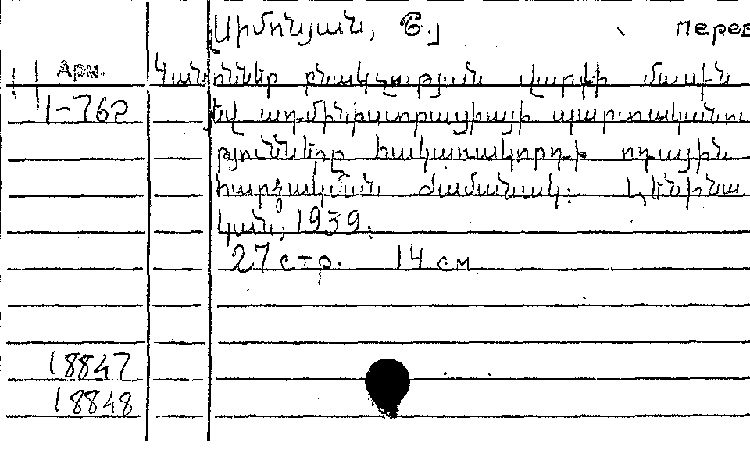 [Սիմոնյան, Ե.] перев
Арм. Կանոններ բնակչության վարքի մասին
1-762 եվ ադմինիստրացիայի պարտականու
թյունները հակառակորդի ոդային
հարձակման ժամանակ: Լենինա
կան, 1939.
27 стр. 14 см
18847
18848